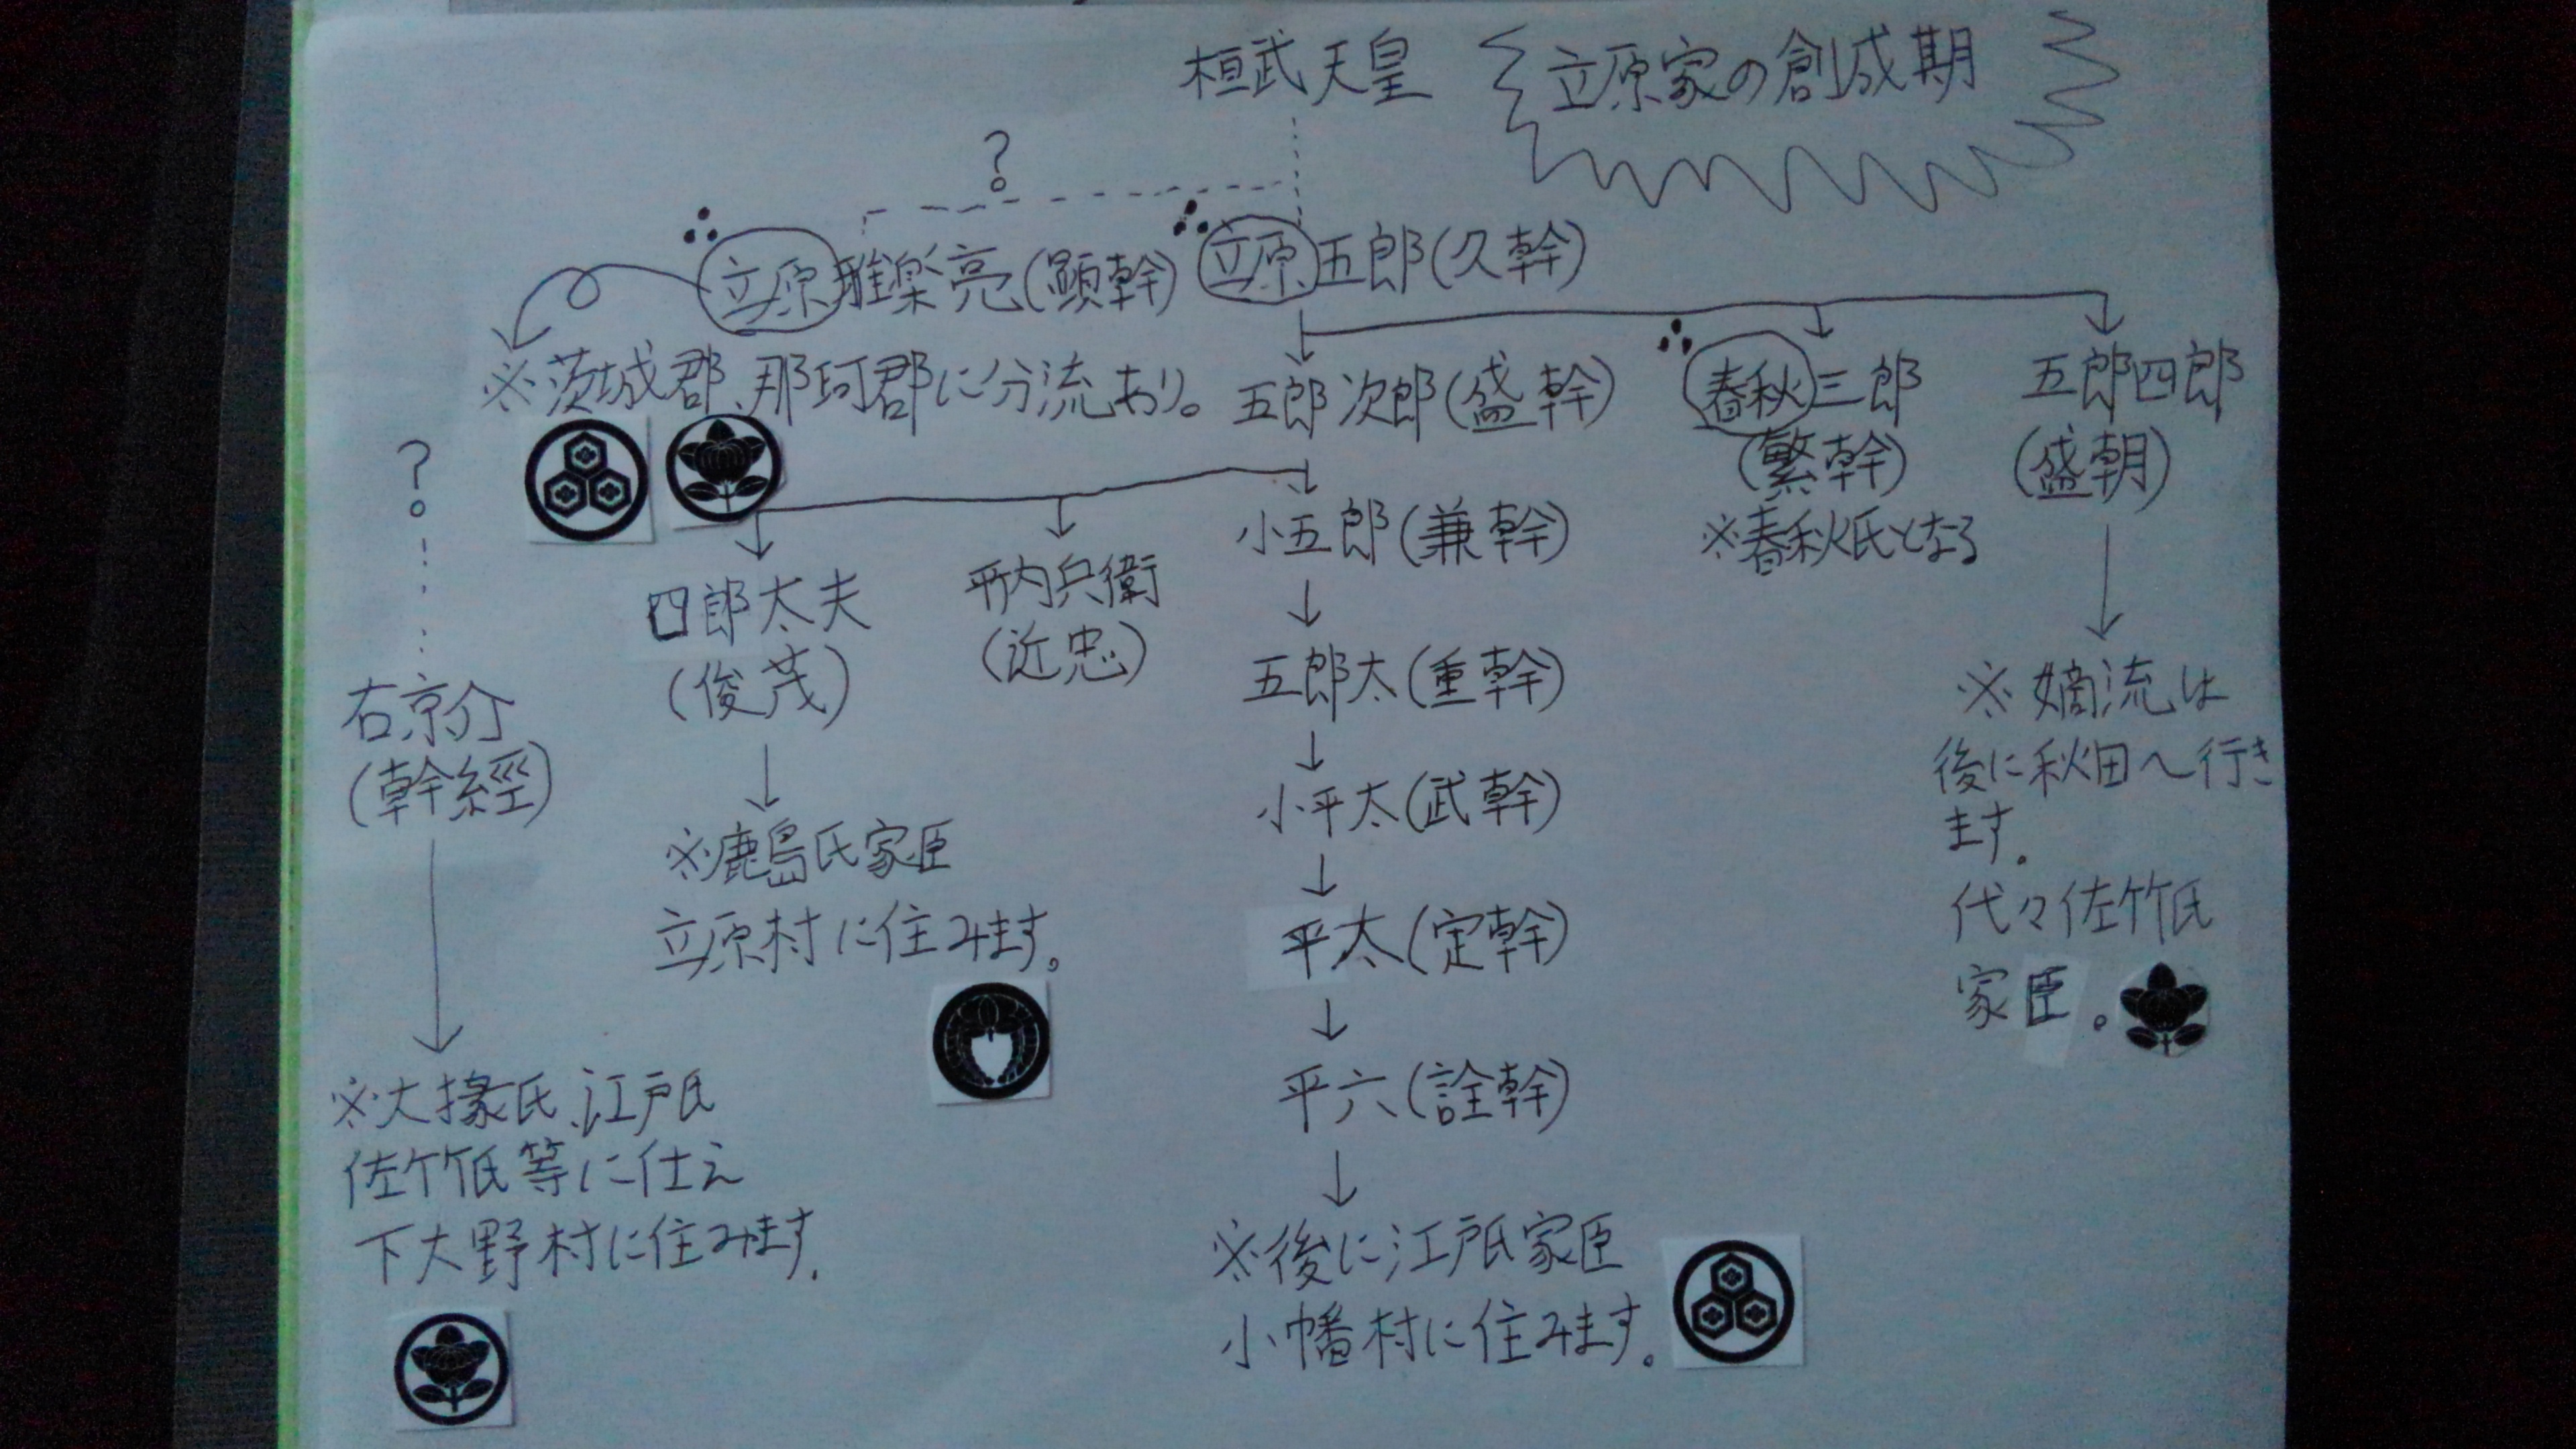 桓武天皇
立原家の創成期
?
立原雅楽亮(顕幹)
立原五郎(久幹)
※茨城郡、那珂郡に分流あり。
五郎次郎(盛幹)
春秋三郎
(繁幹)
※春秋氏となる
五郎四郎
(盛朝)
※嫡流は
後に秋田へ行き
ます。
代々佐竹氏
家臣。
小五郎(兼幹)
五郎太(重幹)
小平太(武幹)
平太(定幹)
平六(詮幹)
※後に江戸氏家臣
小幡村に住みます。
兵衛
(近忠)
四郎太夫
(俊茂)
※鹿島氏家臣
立原村に住みます。
?
右京介
(幹經)
※大掾氏、江戸氏
佐竹氏等に仕え
下大野村に住みます.